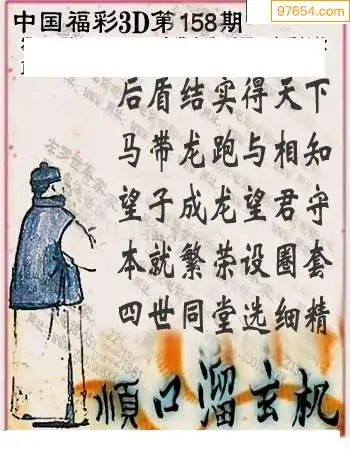 97654.com
中国福彩3D第158期
后盾结实得天下
马带龙跑与相知
望子成龙望君守
本就繁荣设圈套
四世同堂选细精
顺口溜玄机